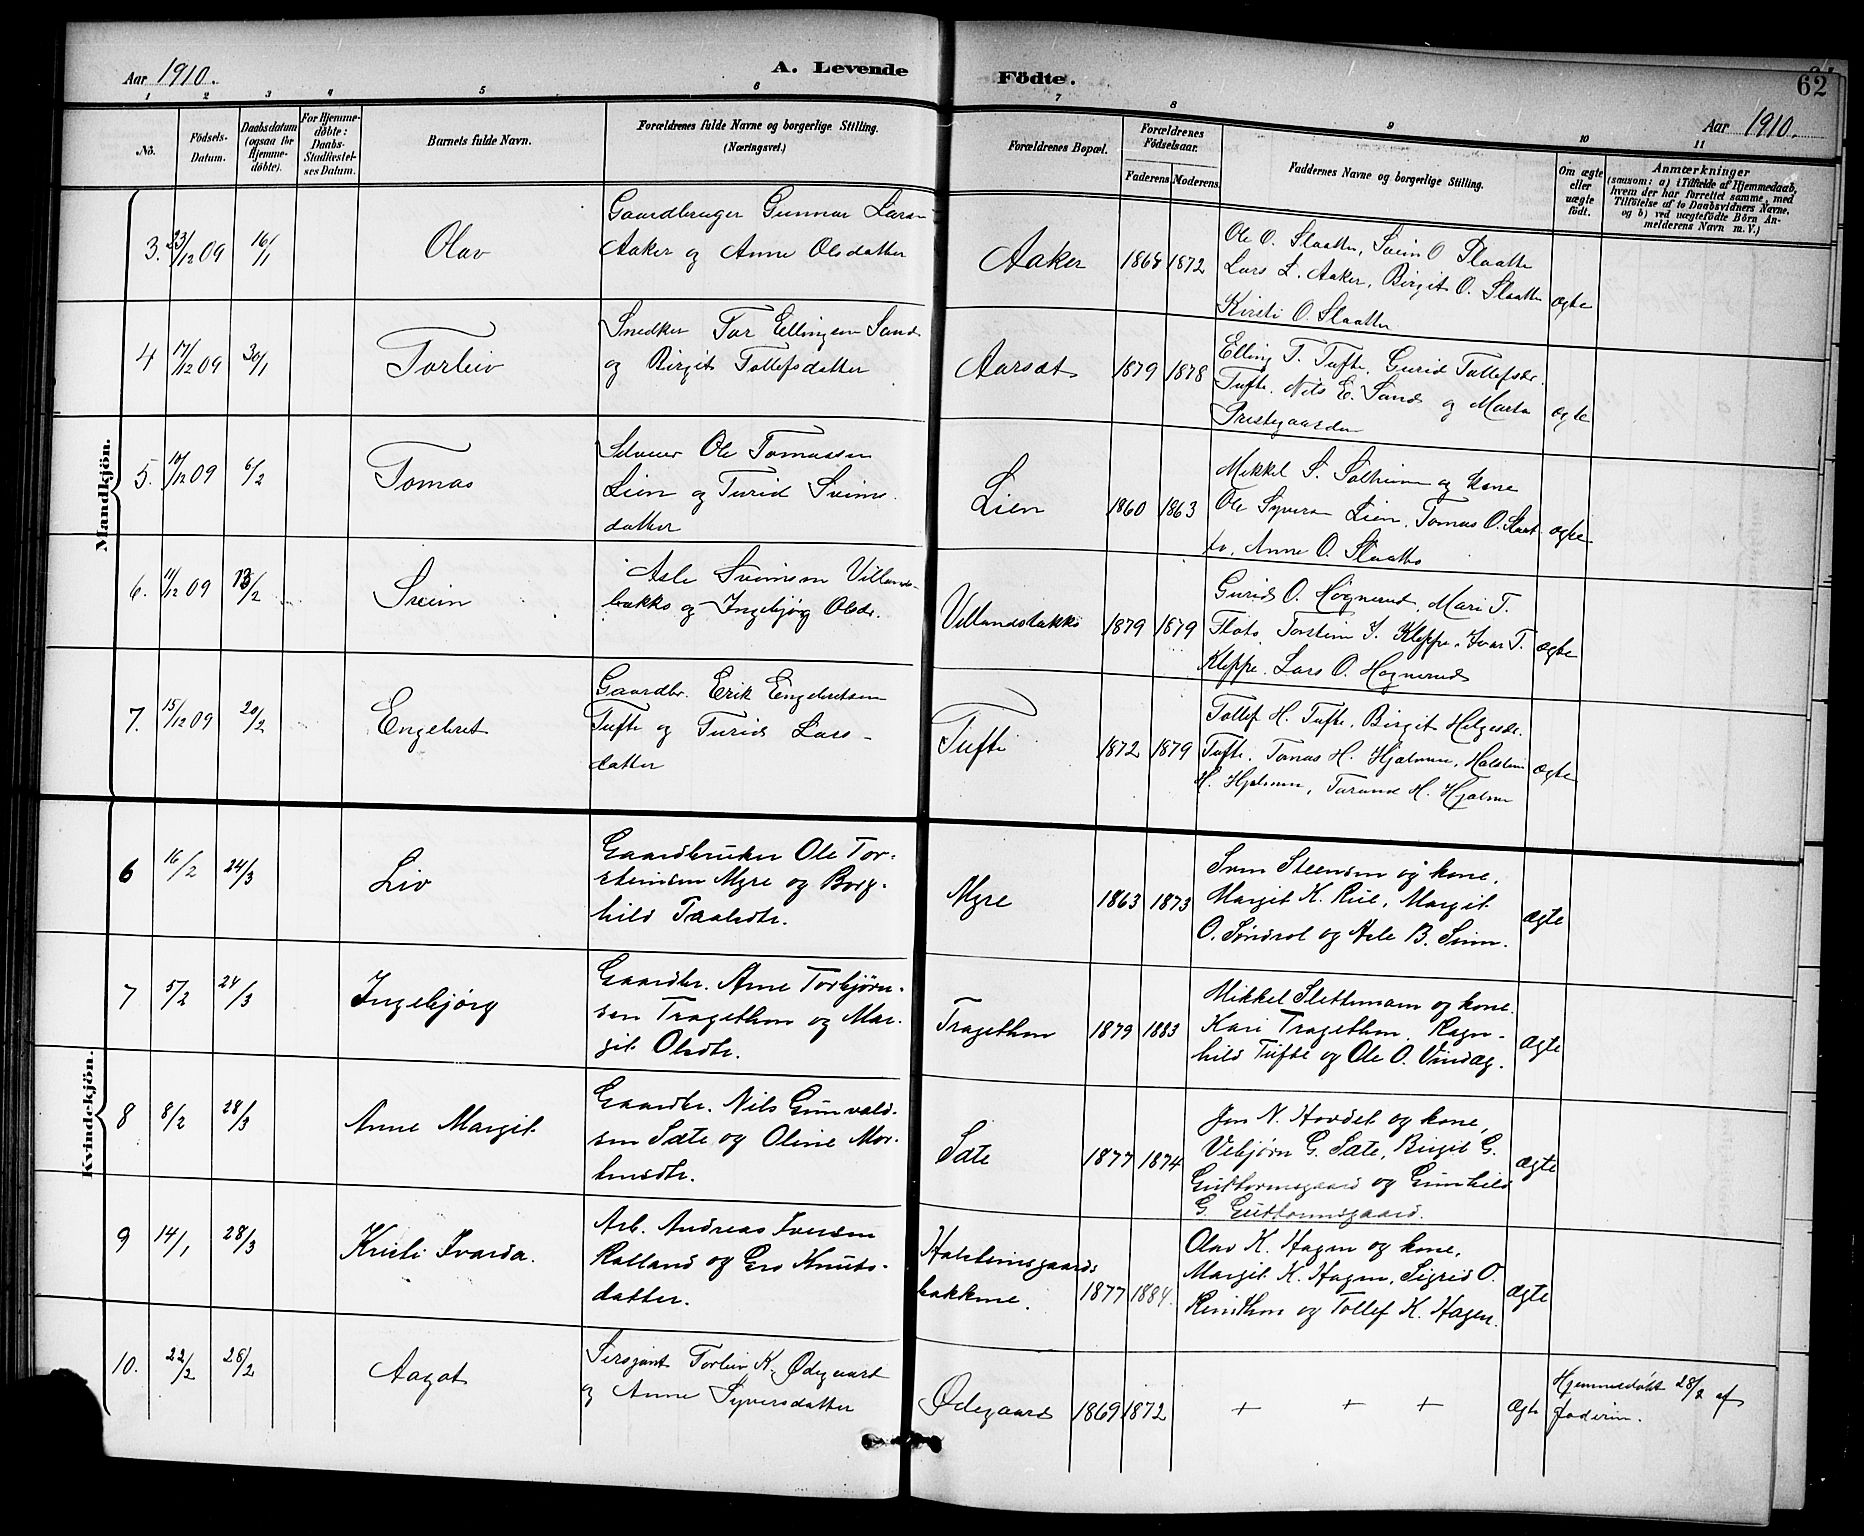 Aar 1910.
A. Levende Födte.
62
Aar 1910.
1 2 3 4 5 6 7 8 9 10 11
No.
Födsels-Datum.
Daabsdatum (ogsaa for Hjemmedøbte).
For Hjemmedøbte: Daabs-Stadfæstelses Datum.
Barnets fulde Navn.
Forældrenes fulde Navne og borgerlige Stilling. (Næringsvei.)
Forældrenes Bopæl.
Forældrenes Fødselsaar.
Faderens Moderens
Faddernes Navne og borgerlige Stilling.
Om ægte eller uægte født.
Anmærkninger
(saasom: a) i Tilfælde af Hjemmedaab, hvem der har forrettet samme, med Tilføielse af to Daabsvidners Navne, og b) ved uægtefødte Børn Anmelderens Navn m. V.)
Mandkjön.
3. 23/12 09 16/1 Olav
Gaardbruger Gunnar Lars-
Aaker og Anne Olsdatter
Aaker 1868 1872
Ole O. Slaatte, Svein O Slaatte
Lars L. Aaker, Birgit O. Slaatte
Kirsti O. Slaatte
ægte
4 17/12 09 30/1 Torleiv
Snedker Tor Ellingsen Sand
og Birgit Tollefsdatter
Aarset 1879 1878
Elling T. Tufte, Gurid Tollefsdr.
Tufte. Nils E. Sand og Marta
Prestegaarden
ægte
5. 10/12 09 6/2 Tomas
Selveier Ole Tomassen
Lien og Turid Sveins
datter
Lien 1860 1863
Mikkel S. Solheim og kone
Ole Syvers Lien, Tomas O. Slaat-
te, Anne O. Slaatte
ægte
6. 11/12 09 13/2 Svein
Asle Sveinsen Villands-
bakke og Ingebjørg Olsdr.
Villandsbakke 1879 1879
Gurid O. Høgnerud, Mari T.
Floto, Torstein I. Kleppe, Ivar T.
Kleppe. Lars O. Høgnerud
ægte
7. 15/12 09 20/2 Engebret
Gaardbr. Erik Engebretsen
Tufte og Turid Lars-
datter
Tufte 1872 1879
Tollef H. Tufte, Birgit Helgesdr.
Tufte. Tomas H. Hjælmen, Halstein
H. Hjelmen, Torand H. Hjelmen
ægte
Kvindekjön.
6 16/2 24/3 Liv
Gaardbruker Ole Tor-
steinsen Myre og Borg-
hild Taaledtr.
Myre 1863 1873
Sven Steensen og kone,
Margit K. Rue, Margit
O. Søndrol og Asle B. Sven.
ægte
7 5/2 24/3 Ingebjørg
Gaardbr. Arne Torbjørn-
sen Tragethon og Mar-
git Olsdtr.
Tragethon 1879 1883
Mikkel Slettemoen og kone.
Kari Tragethon, Ragn-
hild Tufte og Ole O. Vindæg.
ægte
8 8/2 28/3 Anne Margit
Gaardbr. Nils Gunvald-
sen Sæte og Oline Mor-
tensdtr.
Sæte 1877 1874
Jon N. Hovdet og kone,
Vebjørn G. Sæte, Birgit G.
Guttormsgaard og Gunhild
G. Guttormsgaard.
ægte
9 14/1 28/3 Kristi Ivarda.
Arb. Andreas Iversen
Ralland og Gro Knuts-
datter.
Halsteinsgaards
bakkene. 1877 1884.
Olav K. Hagen og kone,
Margit K. Hagen, Sigrid O.
Reinthon og Tollef K. Hagen.
ægte
10. 22/2 28/2 Aagot
Sersjant Torleiv K. Ødegaard
og Anne Syversdatter
Ødegaard 1869 1872
+ + +
ægte
Hjemmedøbt 28/2 af
faderen.